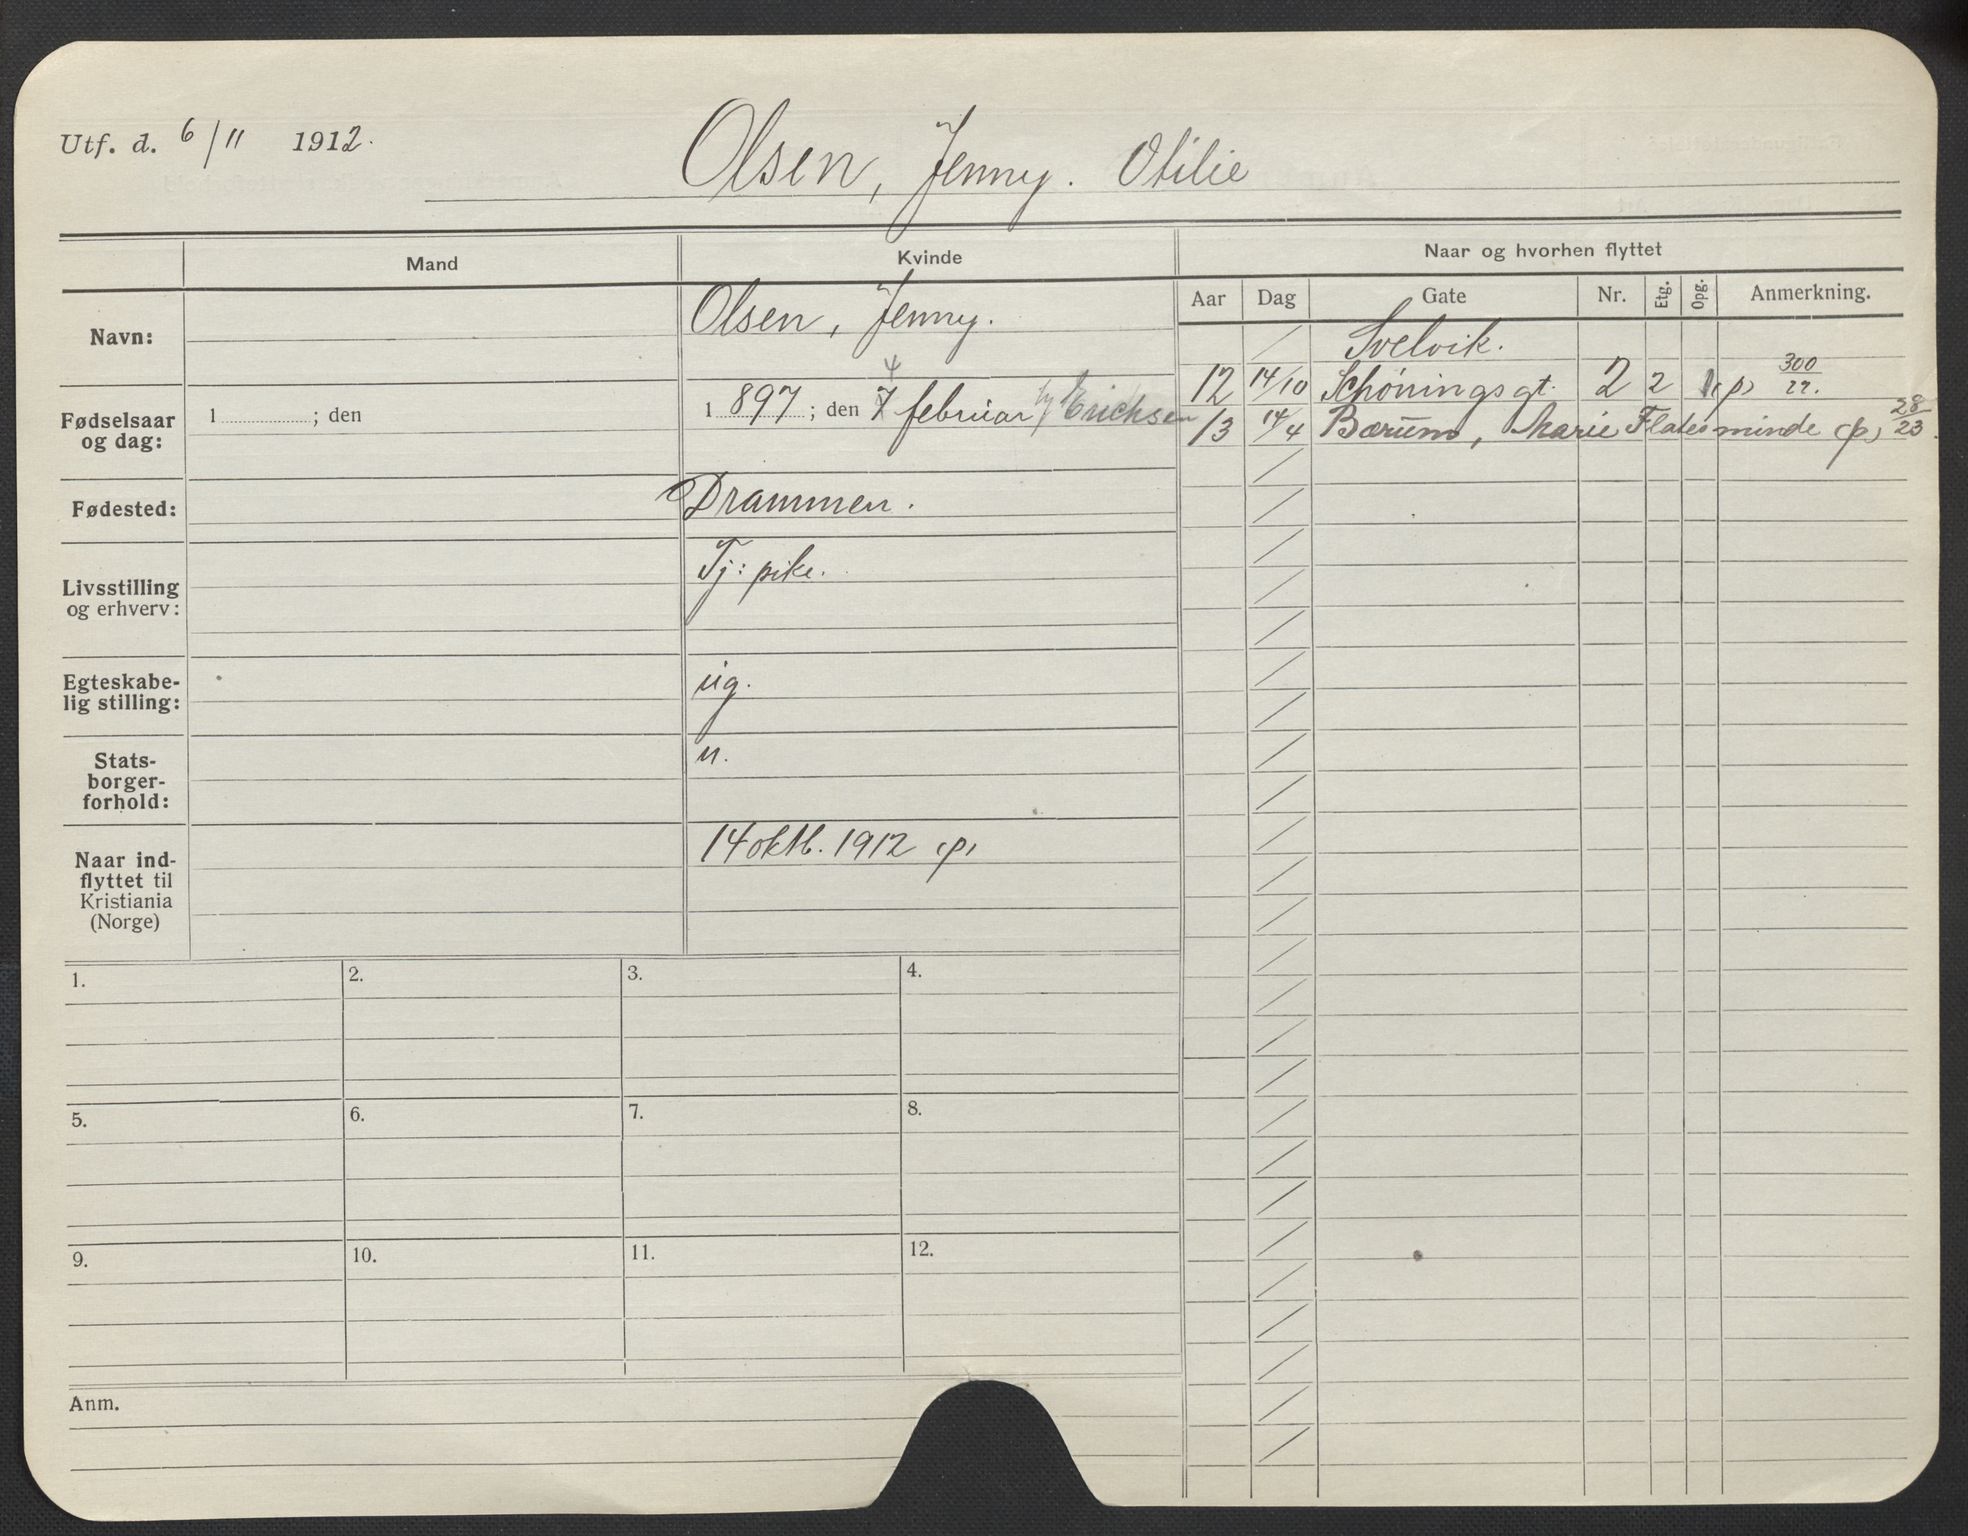 Utf. d. 6/11 1912.
Olsen, Jenny. Otilie
Mand
Kvinde
Naar og hvorhen flyttet
Aar Dag Gate Nr. Etg. Opg. Anmerkning.
Navn:
Olsen, Jenny.
Svelvik.
12 14/10 Schønings gt. 2 2 (p) 300/22.
13 14/4 Bærum, Marie Flatesminde (p) 28/23.
Fødselsaar
og dag:
1 ; den
4
1 897 ; den 7 februar Erichsen
Fødested:
Drammen.
Livsstilling
og erhverv:
Tj: pike.
Egteskabe-
lig stilling:
ug.
Stats-
borger-
forhold:
n.
Naar ind-
flyttet til
Kristiania
(Norge)
14 oktb. 1912 (p)
1. 2. 3. 4.
5. 6. 7. 8.
9. 10. 11. 12.
Anm.